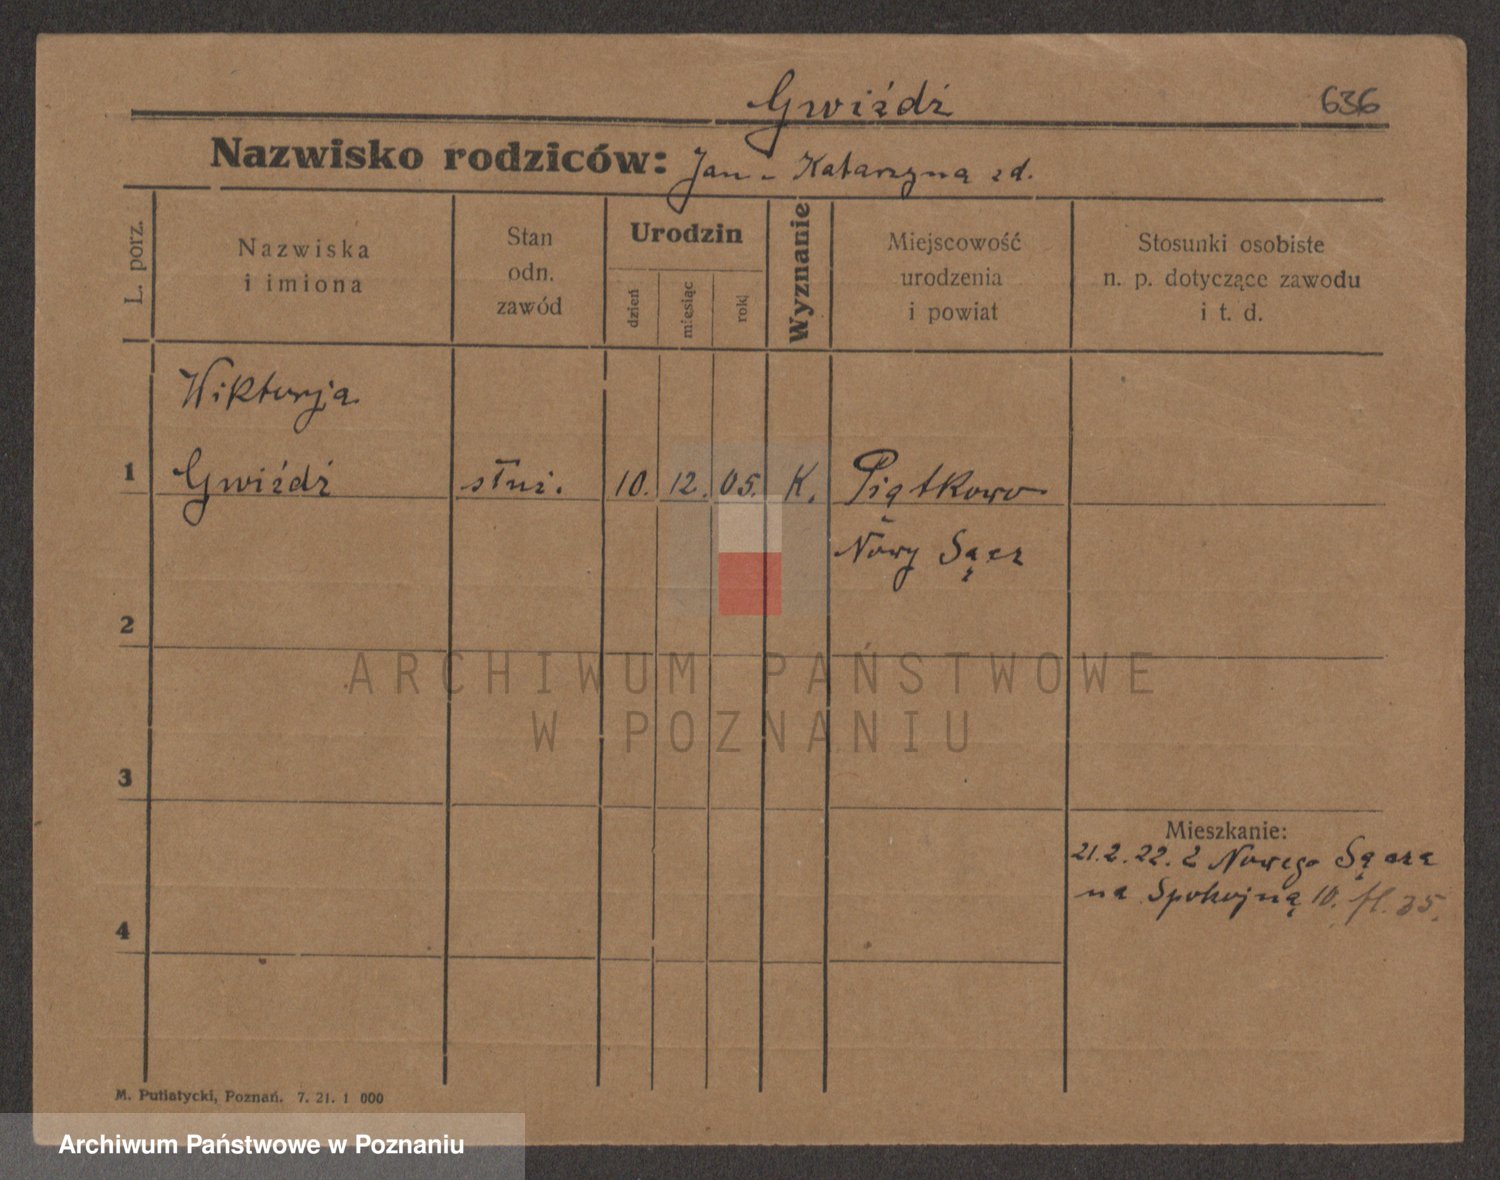 Gwiźdź 636
Nazwisko rodziców: Jan - Katarzyna zd.
L. porz.
Nazwiska
i imiona
Stan
odn.
zawód
Urodzin
dzień
miesiąc
rok
Wyznanie
Miejscowość
urodzenia
i powiat
Stosunki osobiste
n. p. dotyczące zawodu
i t. d.
Wiktorja
1 Gwiźdź służ. 10. 12. 05. K. Piątkowo
Nowy Sącz
2
3
Mieszkanie:
21.2.22. z Nowego Sącza
na Spokojną 10. fl. 35.
4
M. Putiatycki, Poznań. 7. 21. 1 000
ARCHIWUM PAŃSTWOWE
W POZNANIU
Archiwum Państwowe w Poznaniu